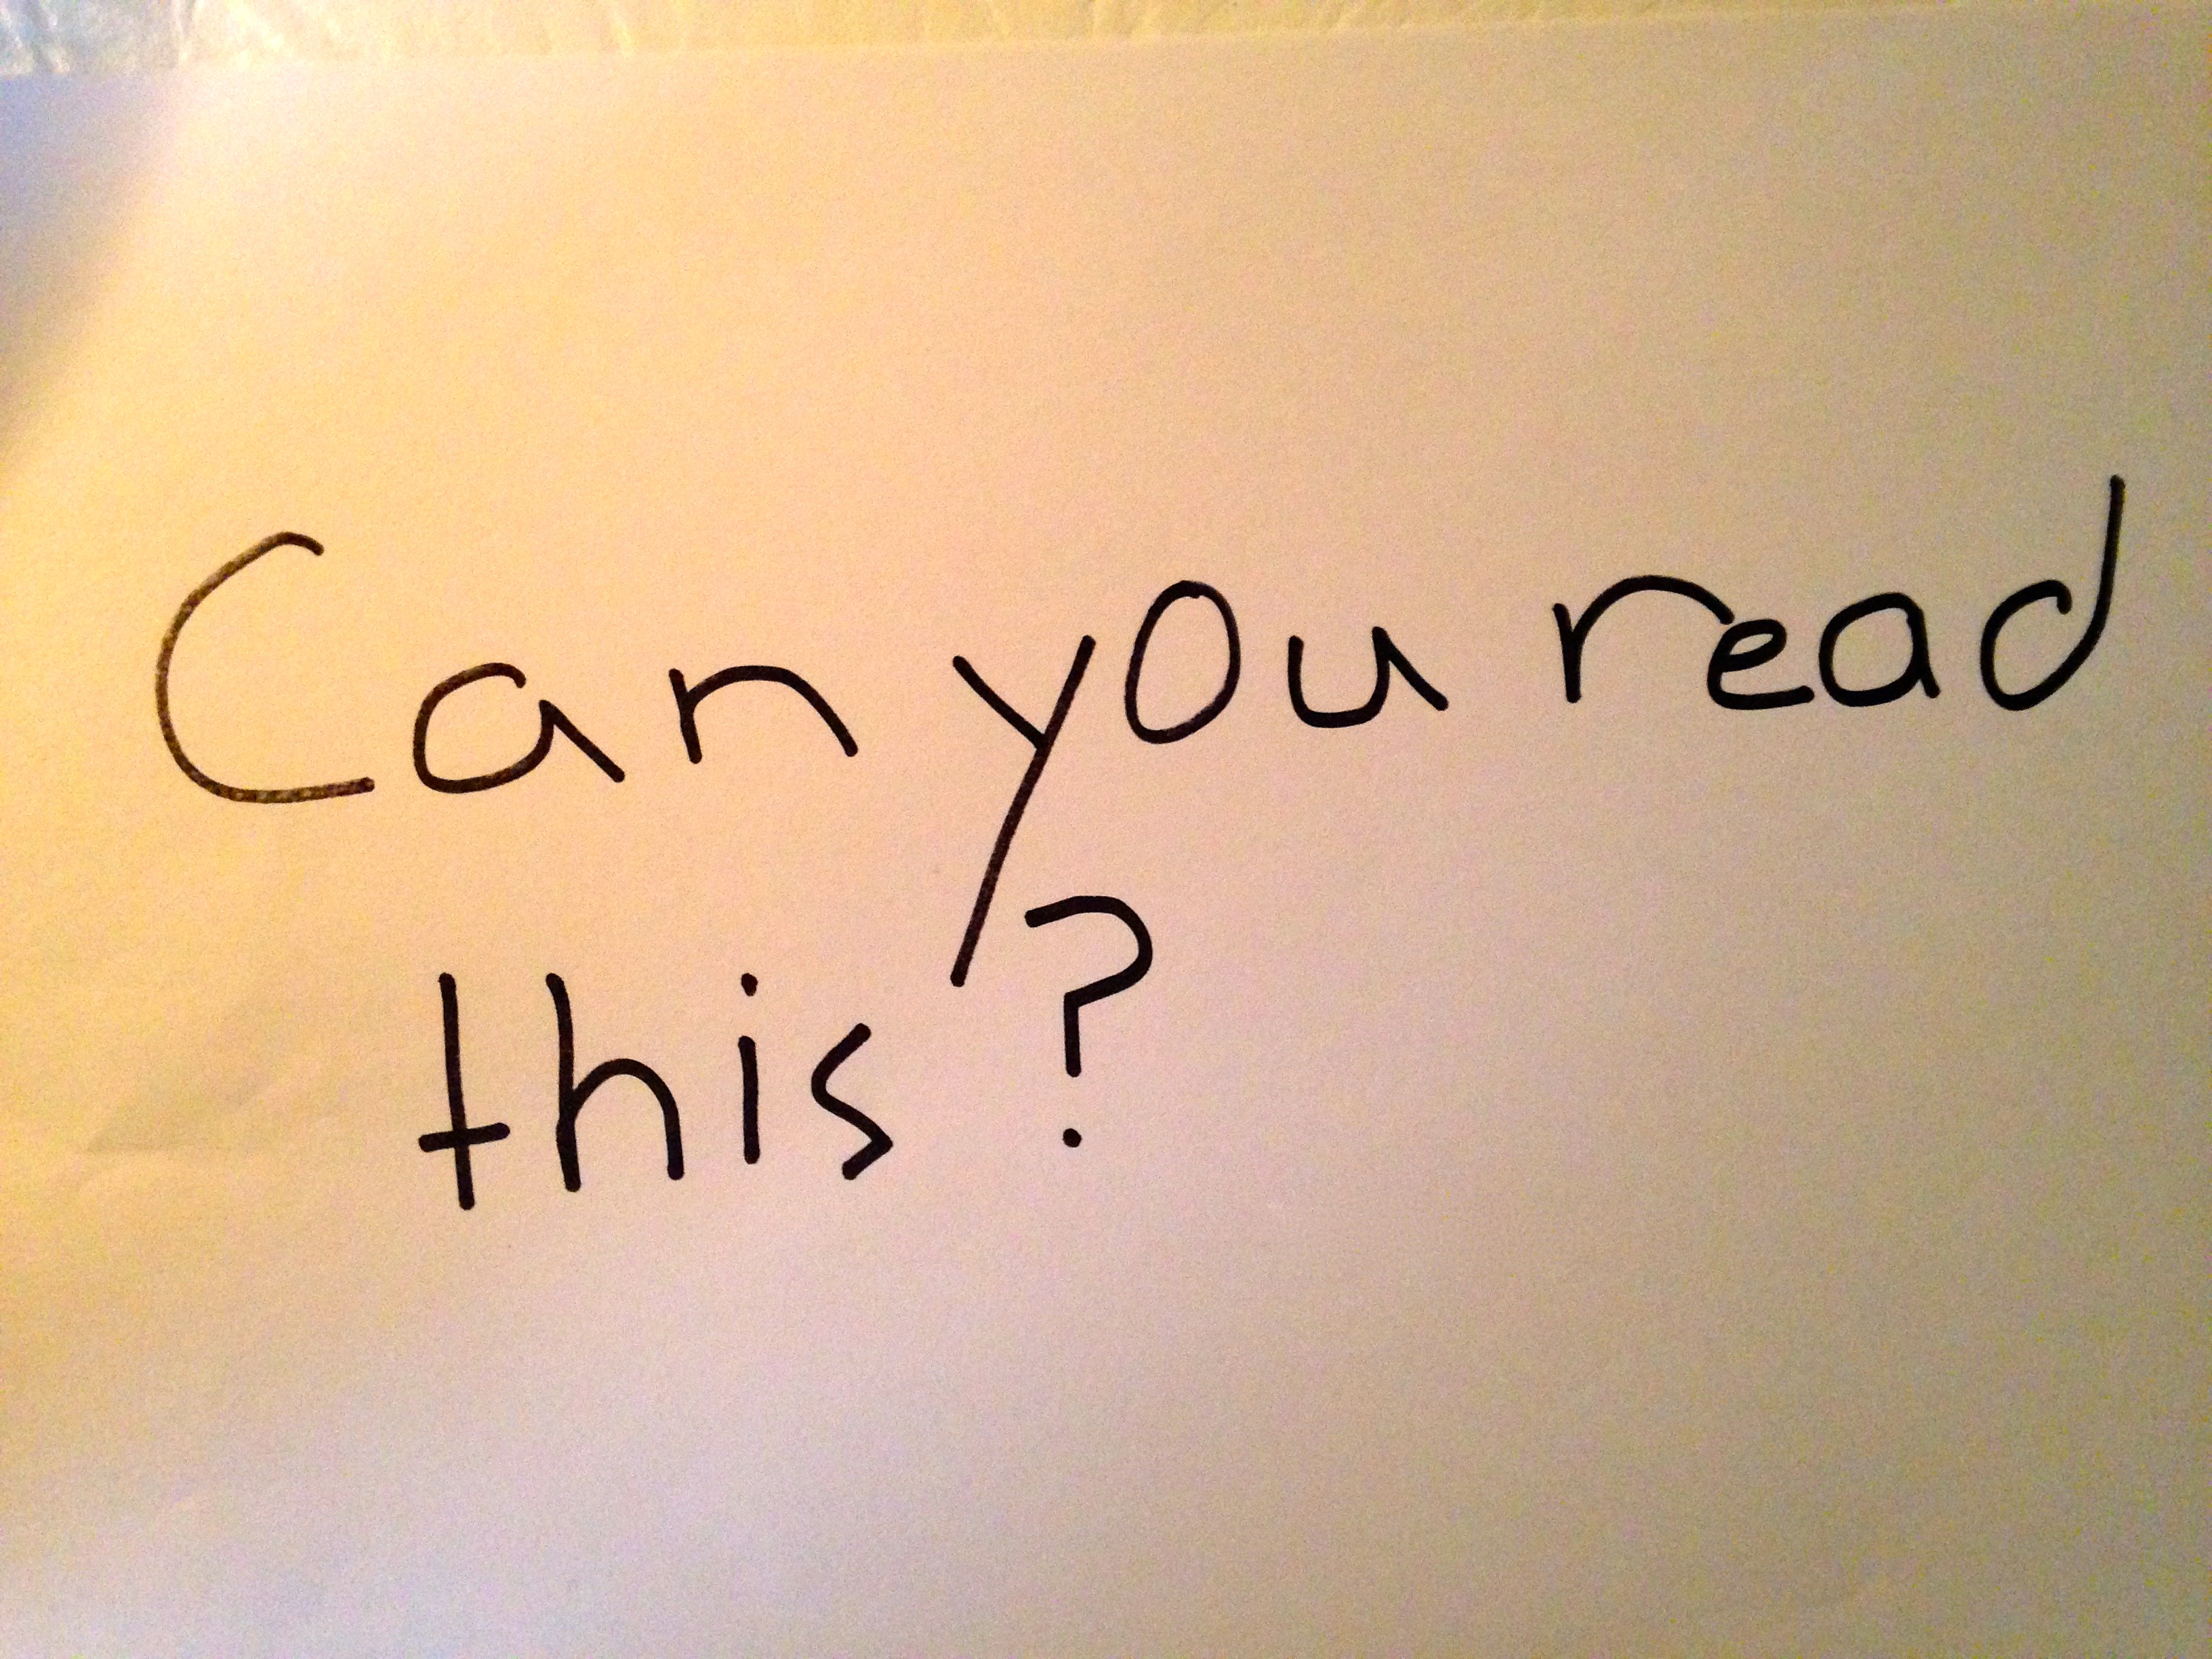 Can you read
this?